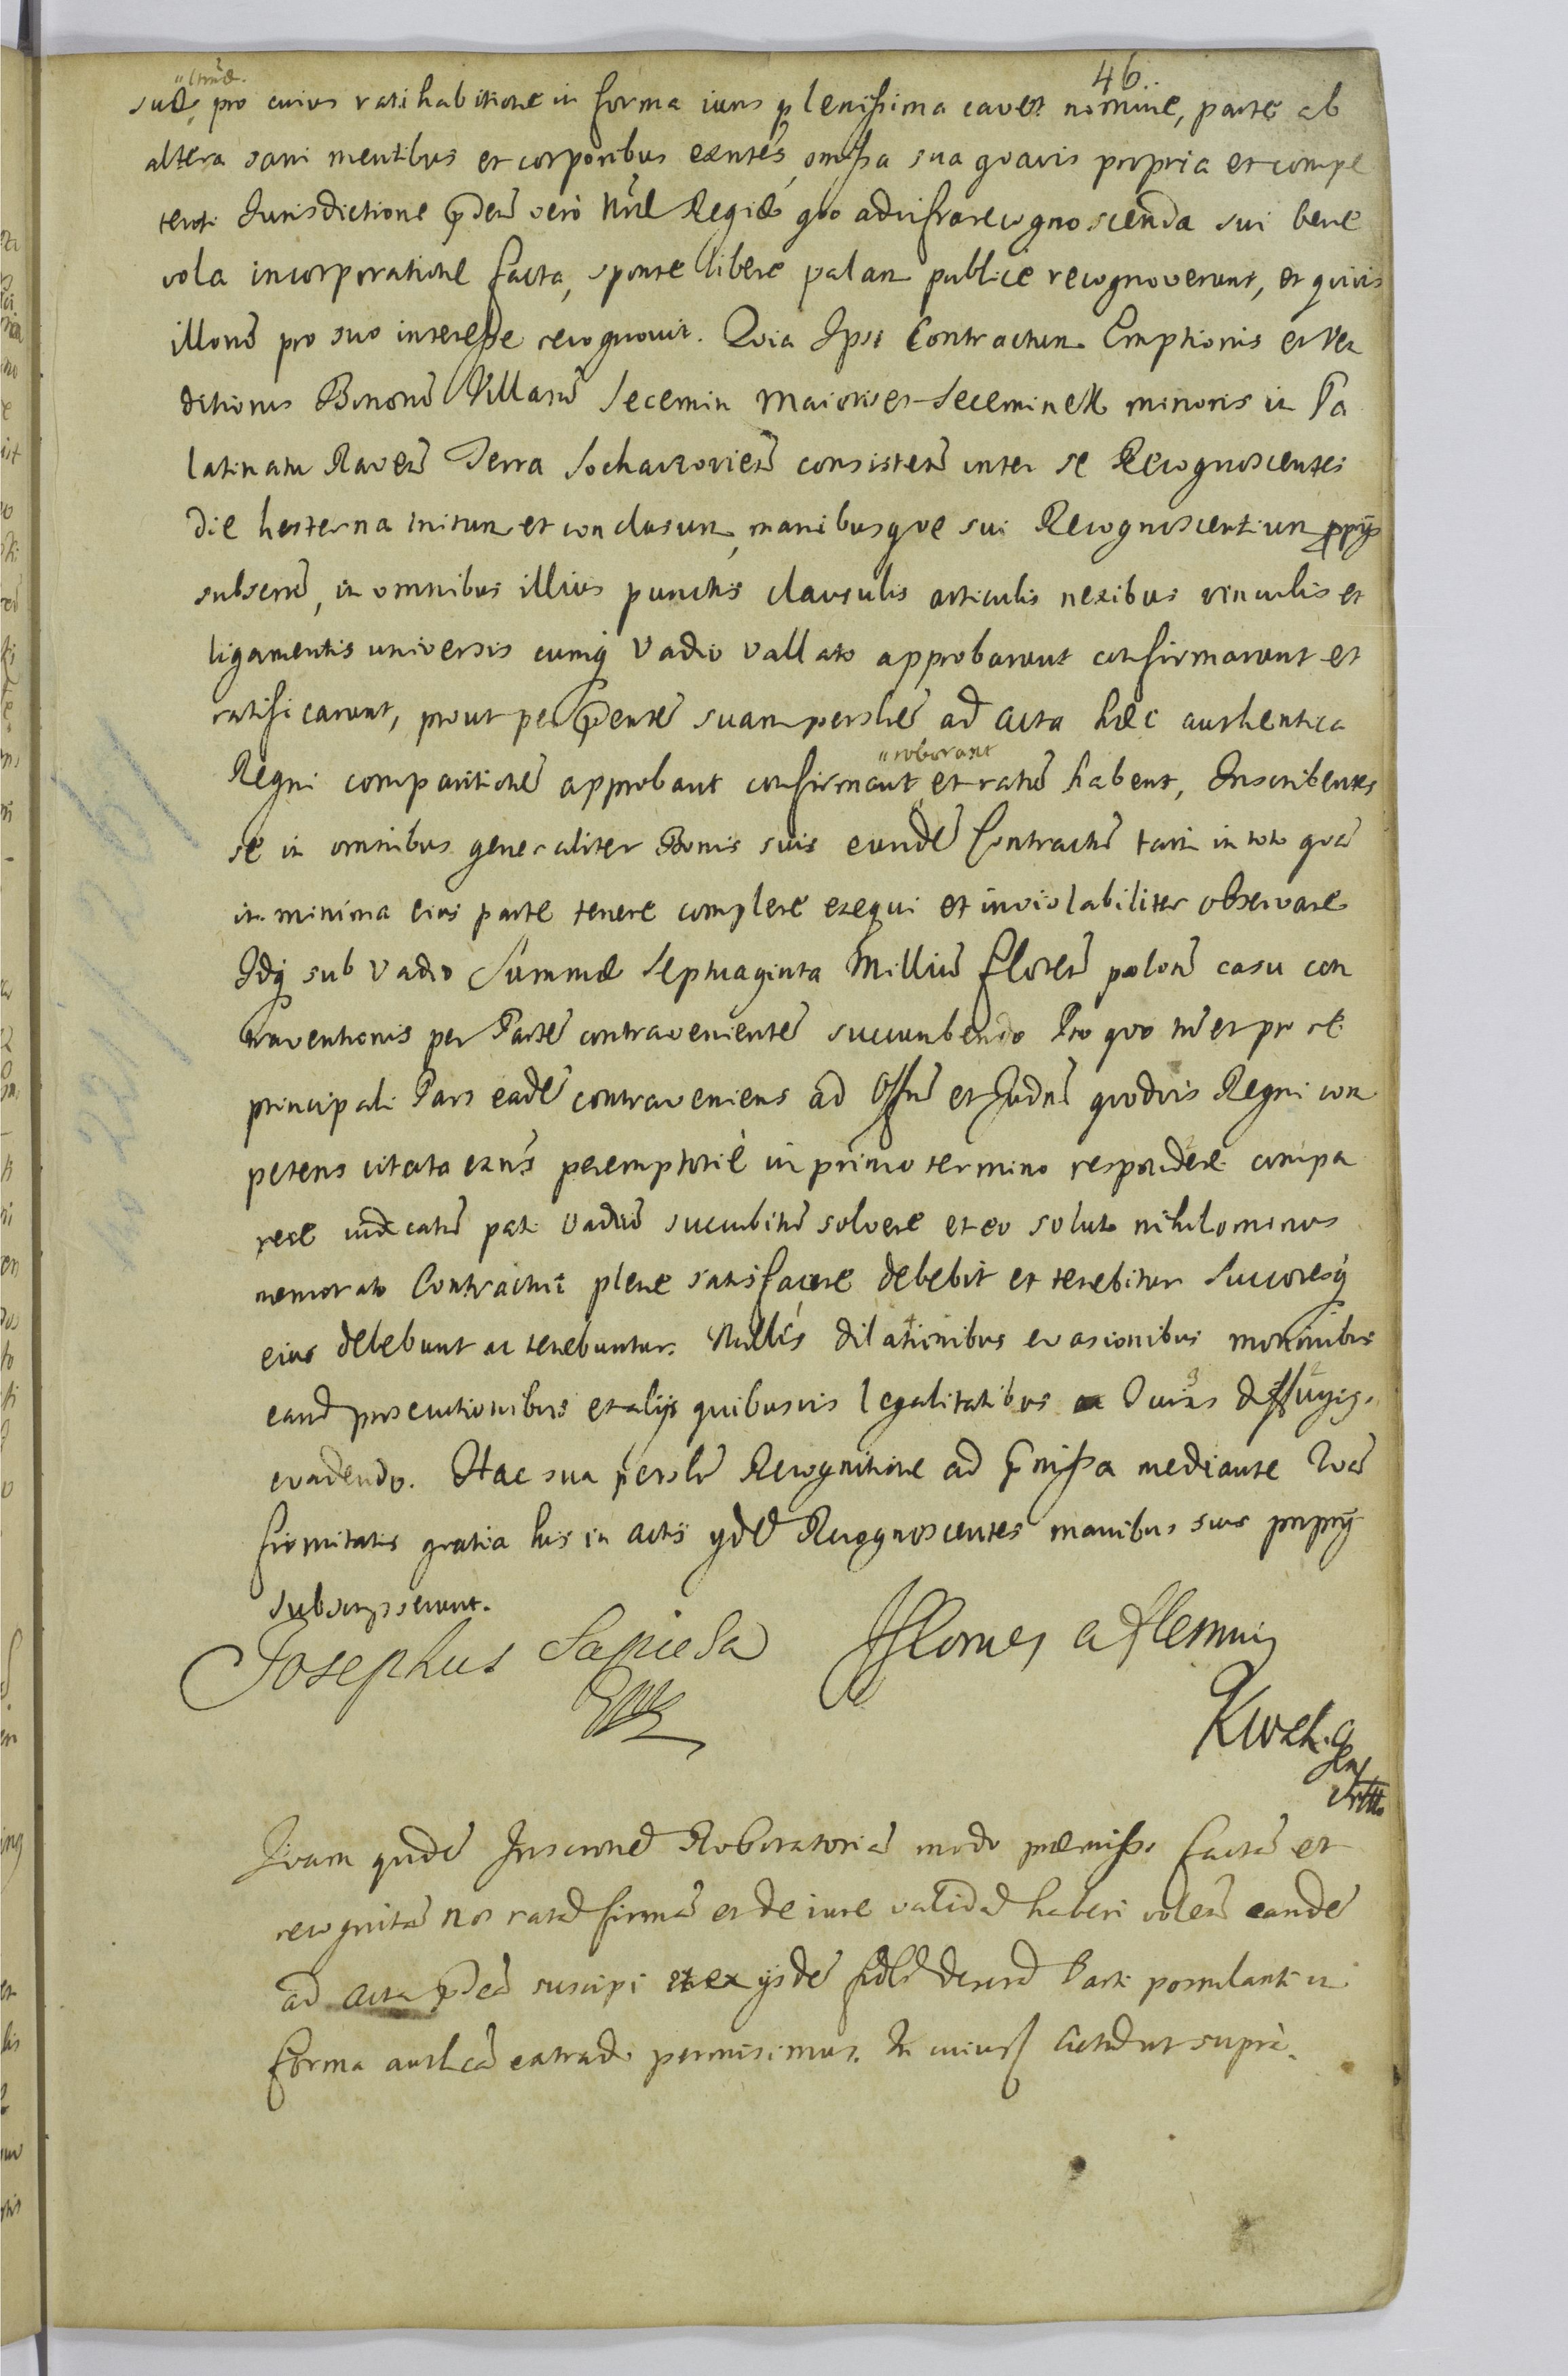 46.
suæ, pro cuius ratihabitione in forma iuris plenissima cavet nomine, parte ab
altera sani mentibus et corporibus exntēs, omissa sua quavis propria et compe
tenti Jurisdictione vero Nræ Regiæ quo ad infrarecognoscenda sui bene
vola incorporatione facta, sponte libere palam publice recognoverunt, et quivis
illorū pro suo interesse recognovit. Quia Ipsi Contractum Emptionis et Ven
ditionis Bonorū Villarū Secemin Maioris et Seceminek minoris in Pa
latinatu Raven̄ Terra Sochaczovien̄ consisten̄ inter se Recognoscentes
die hesterna initum et conclusum, manibusque sui Recognoscentium pprijs
subscrm̄, in omnibus illius punctis clausulis articulis nexibus vinculis et
ligamentis universis cumq̨ Vadio vallato approbarunt confirmarunt et
ratificarunt, prout per p̄entē suam persnlē ad acta hæc authentica
"roborant
Regni comparitionē approbant confirmant et ratū habent, Inscribentes
se in omnibus generaliter Bonis suis eundē Contractū tam in toto quā
in minima eius parte tenere complere exequi et inviolabiliter observare
Idq̨ sub Vadio Summæ Septuaginta Milliū floren̄ polon̄ casu con
traventionis per Partē contravenientē succumbendo Pro quo et pro re
principali Pars eadē contraveniens ad Offm̄ et Judm̄ quodvis Regni com
petens citata exns̄ peremptorie in primo termino respondere compa
rere iudicatū pati vadiū succubitū solvere et eo soluto nihilominus
memorato Contractui plene satisfacere debebit et tenebitur Succoresq̨
eius debebunt ac tenebuntur. Nullis dilationibus evasionibus motionibus
eand prosecutionibus et alijs quibusvis legalitatibus Juris diffugijs
evadendo. Hac sua persnlī Recognitione ad p̄missa mediante
firmitatis gratia his in actis ijdē Recognoscentes manibus suis proprijs
subscripserunt.
Josephus Sapieha a Flemming
Quam quidē Inscrnē Roboratoriā modo præmisso factā et
recognitā nos ratā firmā et de iure validā haberi volen̄ eandē
ad acta suscipi et ex ijsdē Parti postulanti in
forma authcā extradi permisimus. In cuius Actū ut supra.